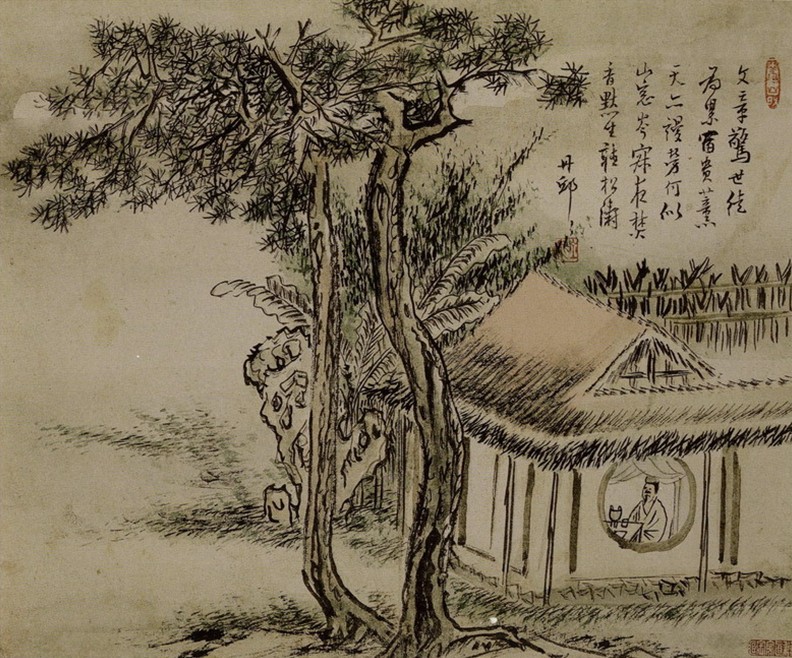 文章驚世徒
爲累富貴薰
天亦謾勞何似
山窓岑寂夜焚
香默坐聽松濤
丹邱